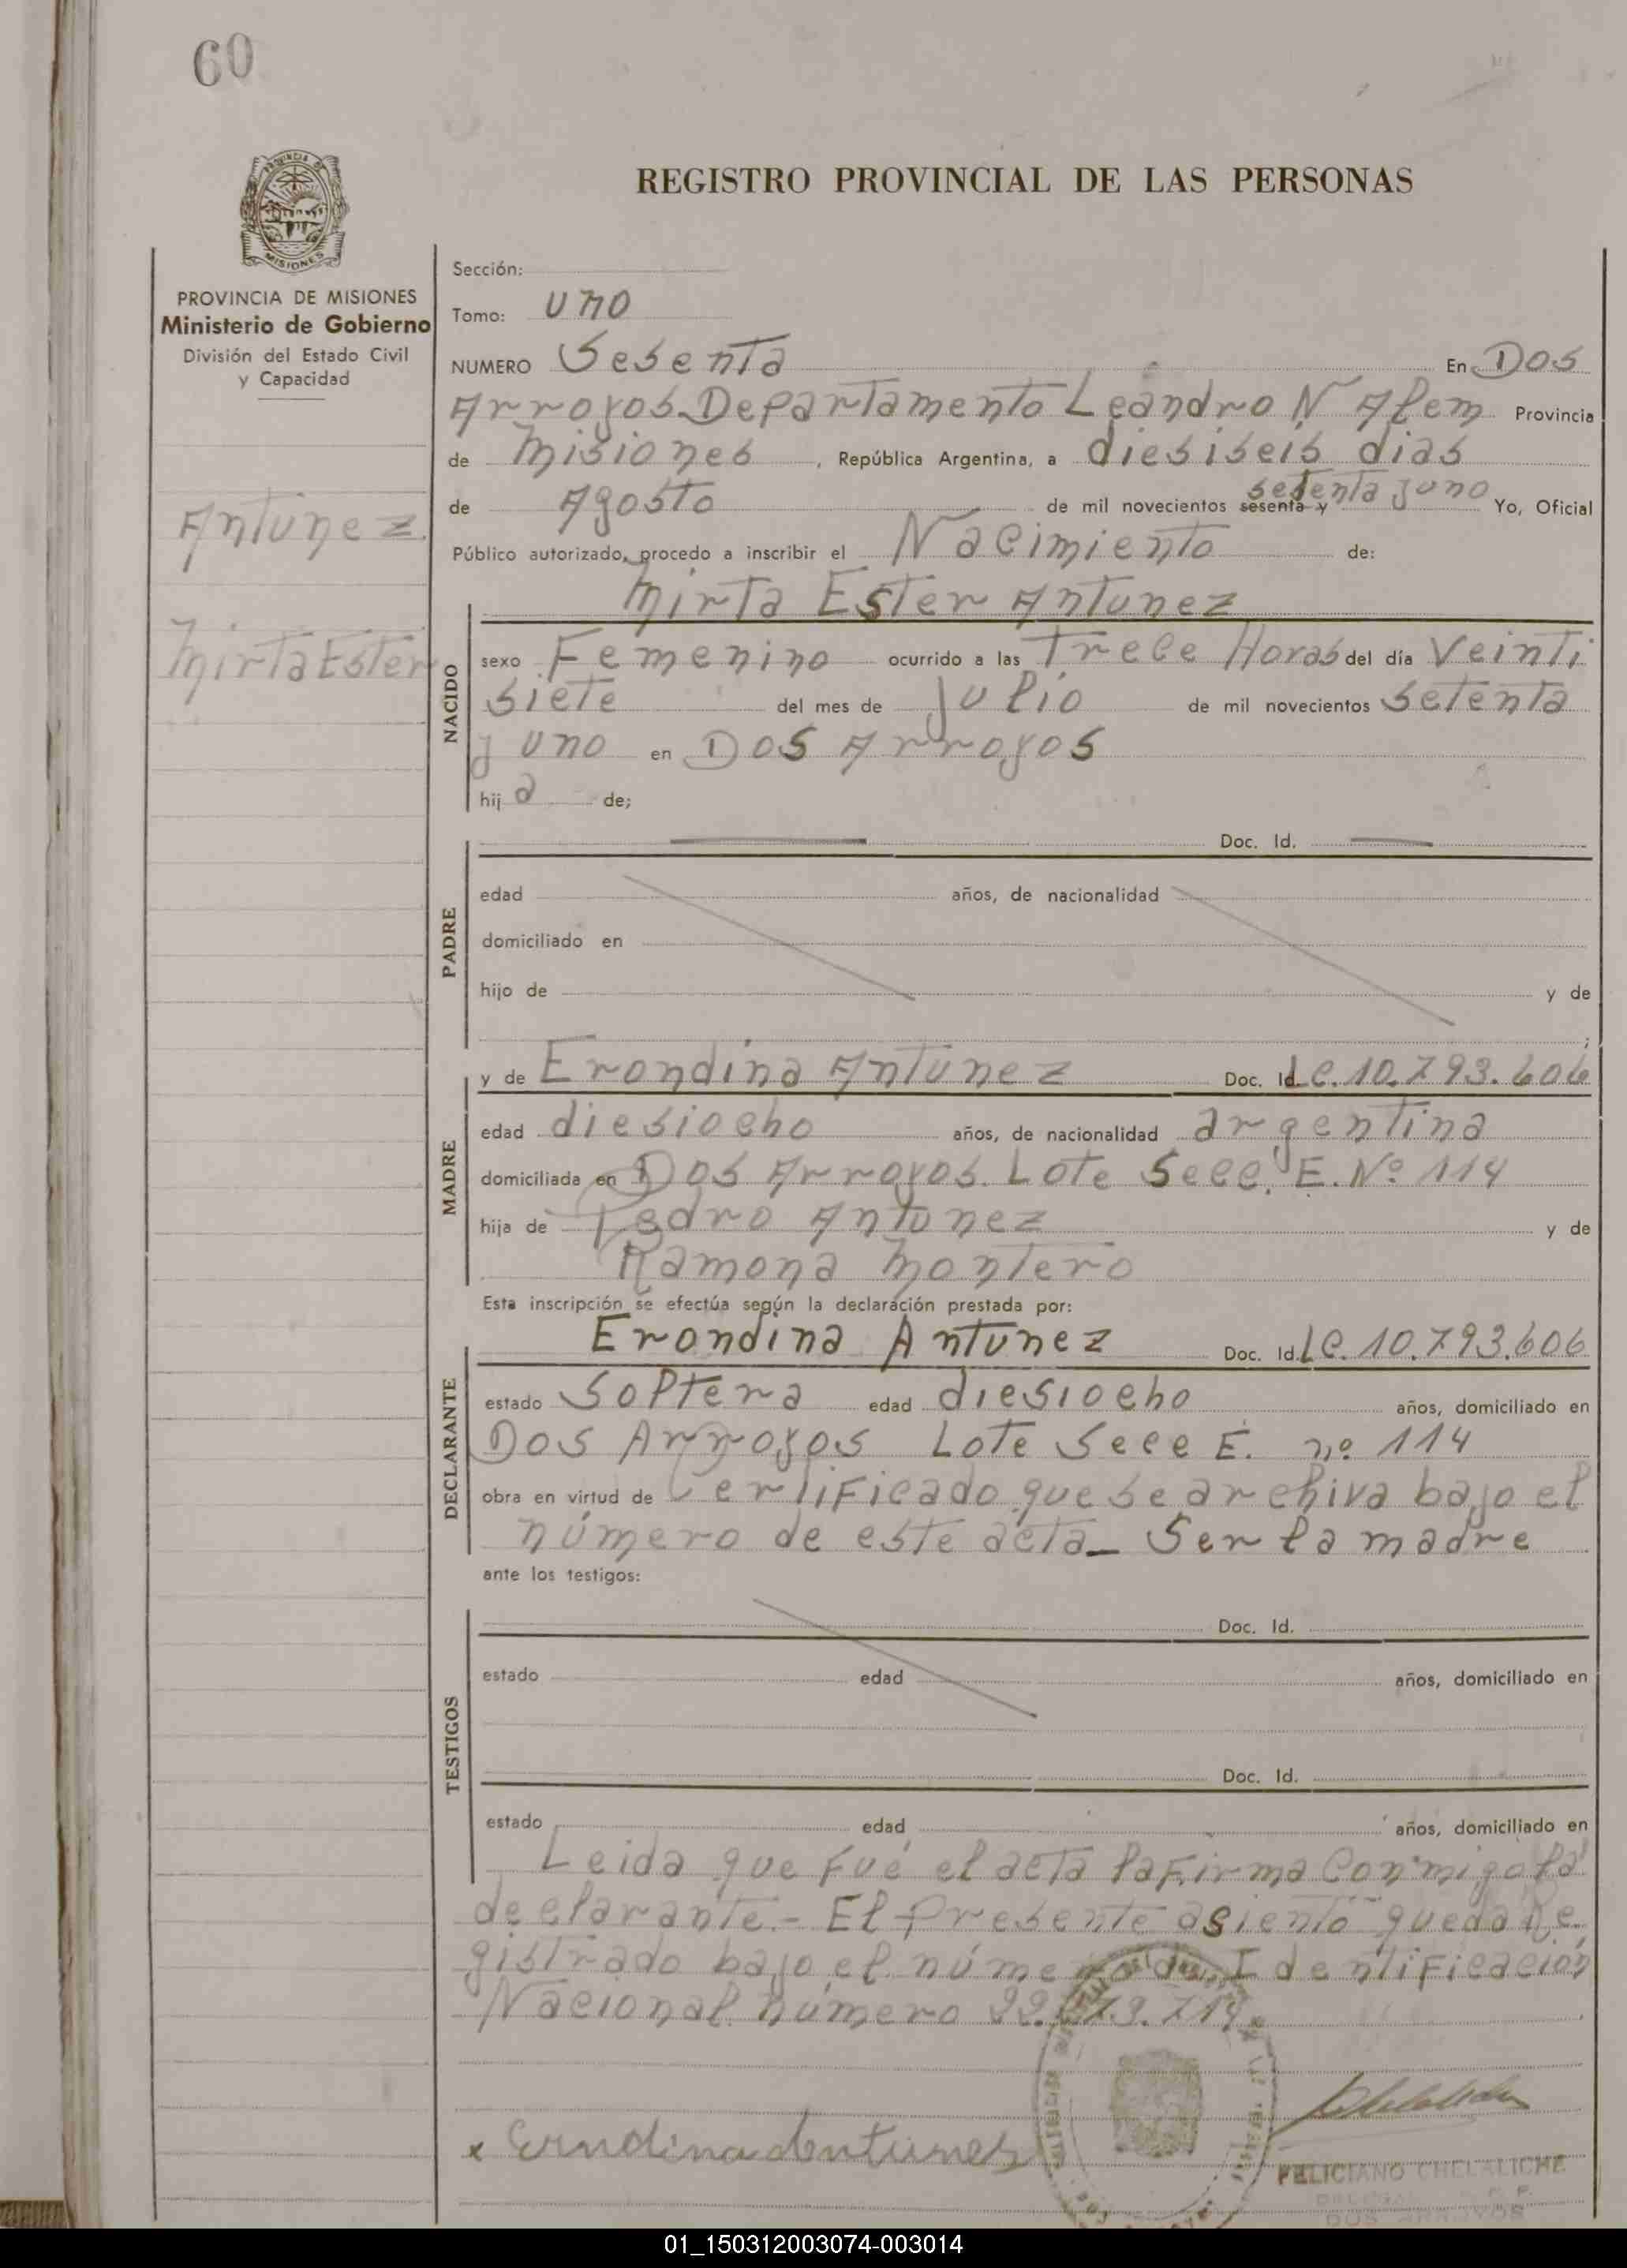 60
REGISTRO PROVINCIAL DE LAS PERSONAS
MISIONES
PROVINCIA DE MISIONES
Ministerio de Gobierno
División del Estado Civil
y Capacidad
Antunez
Mirta Ester
Sección:
Tomo: uno
NUMERO Sesenta En Dos
Arroyos Departamento Leandro N Alem Provincia
de Misiones, República Argentina, a diesiseis dias
de Agosto de mil novecientos sesenta y setenta y uno Yo, Oficial
Público autorizado, procedo a inscribir el Nacimiento de:
Mirta Ester Antunez
NACIDO
sexo Femenino ocurrido a las Trece Horas del día Veinti
siete del mes de Julio de mil novecientos setenta
y uno en Dos Arroyos
hij a de;
PADRE
Doc. Id.
edad años, de nacionalidad
domiciliado en
hijo de y de
;
MADRE
y de Erondina Antunez Doc. Id. LC. 10.793.606
edad diesiocho años, de nacionalidad argentina
domiciliada en Dos Arroyos. Lote Secc. E. Nº 114
hija de Pedro Antunez y de
Ramona Montero
Esta inscripción se efectúa según la declaración prestada por:
DECLARANTE
Erondina Antunez Doc. Id. LC. 10.793.606
estado Soltera edad diesiocho años, domiciliado en
Dos Arroyos Lote Secc E. nº 114
obra en virtud de Certificado que se archiva bajo el
número de este acta_ Ser la madre
ante los testigos:
TESTIGOS
Doc. Id.
estado edad años, domiciliado en
Doc. Id.
estado edad años, domiciliado en
Leida que fué el acta la firma conmigo la
declarante.- El presente asiento queda Re
gistrado bajo el número de Identificación
Nacional número
x Erndina Antunes
FELICIANO CHELALICHE
DOS ARROYOS
01_150312003074-003014